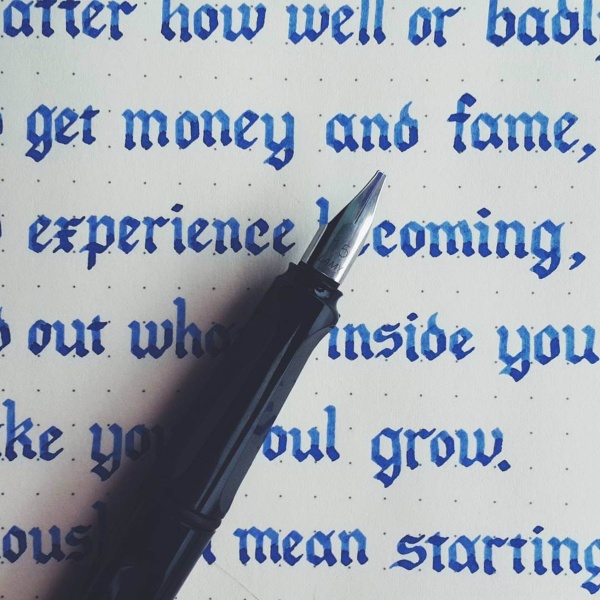 atter how well or badly
get money and fame,
experience coming,
out wha inside you
ke yo oul grow.
ously mean starting